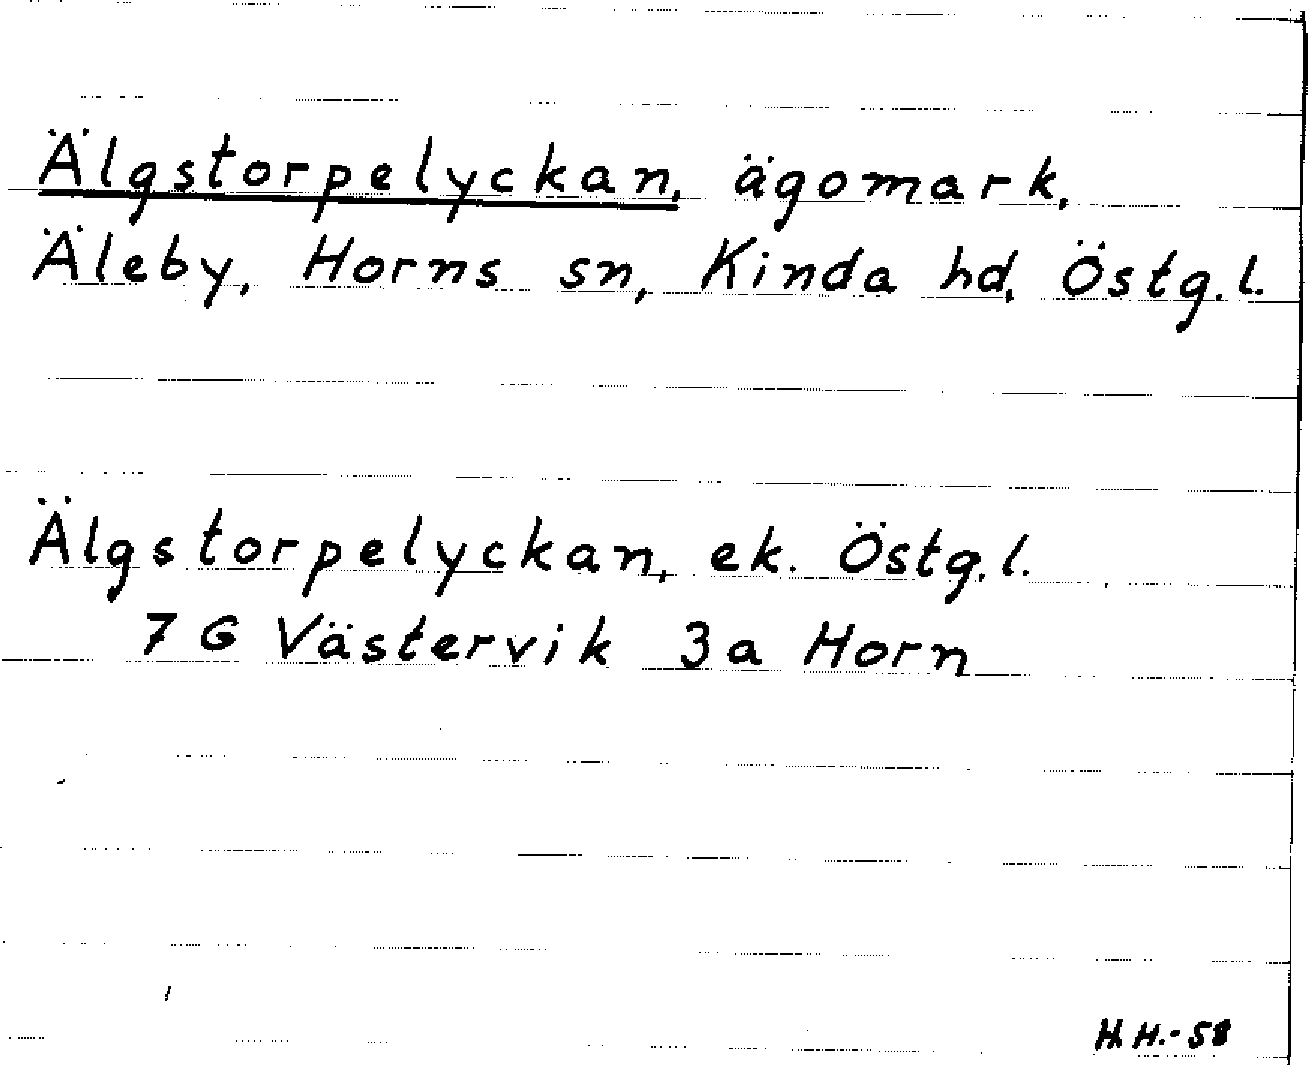 Älgstorpelyckan, ägomark,
Äleby, Horns sn, Kinda hd, Östg.l.
Älgstorpelyckan, ek. Östg.l.
7 G Västervik 3a Horn
H.H.-58